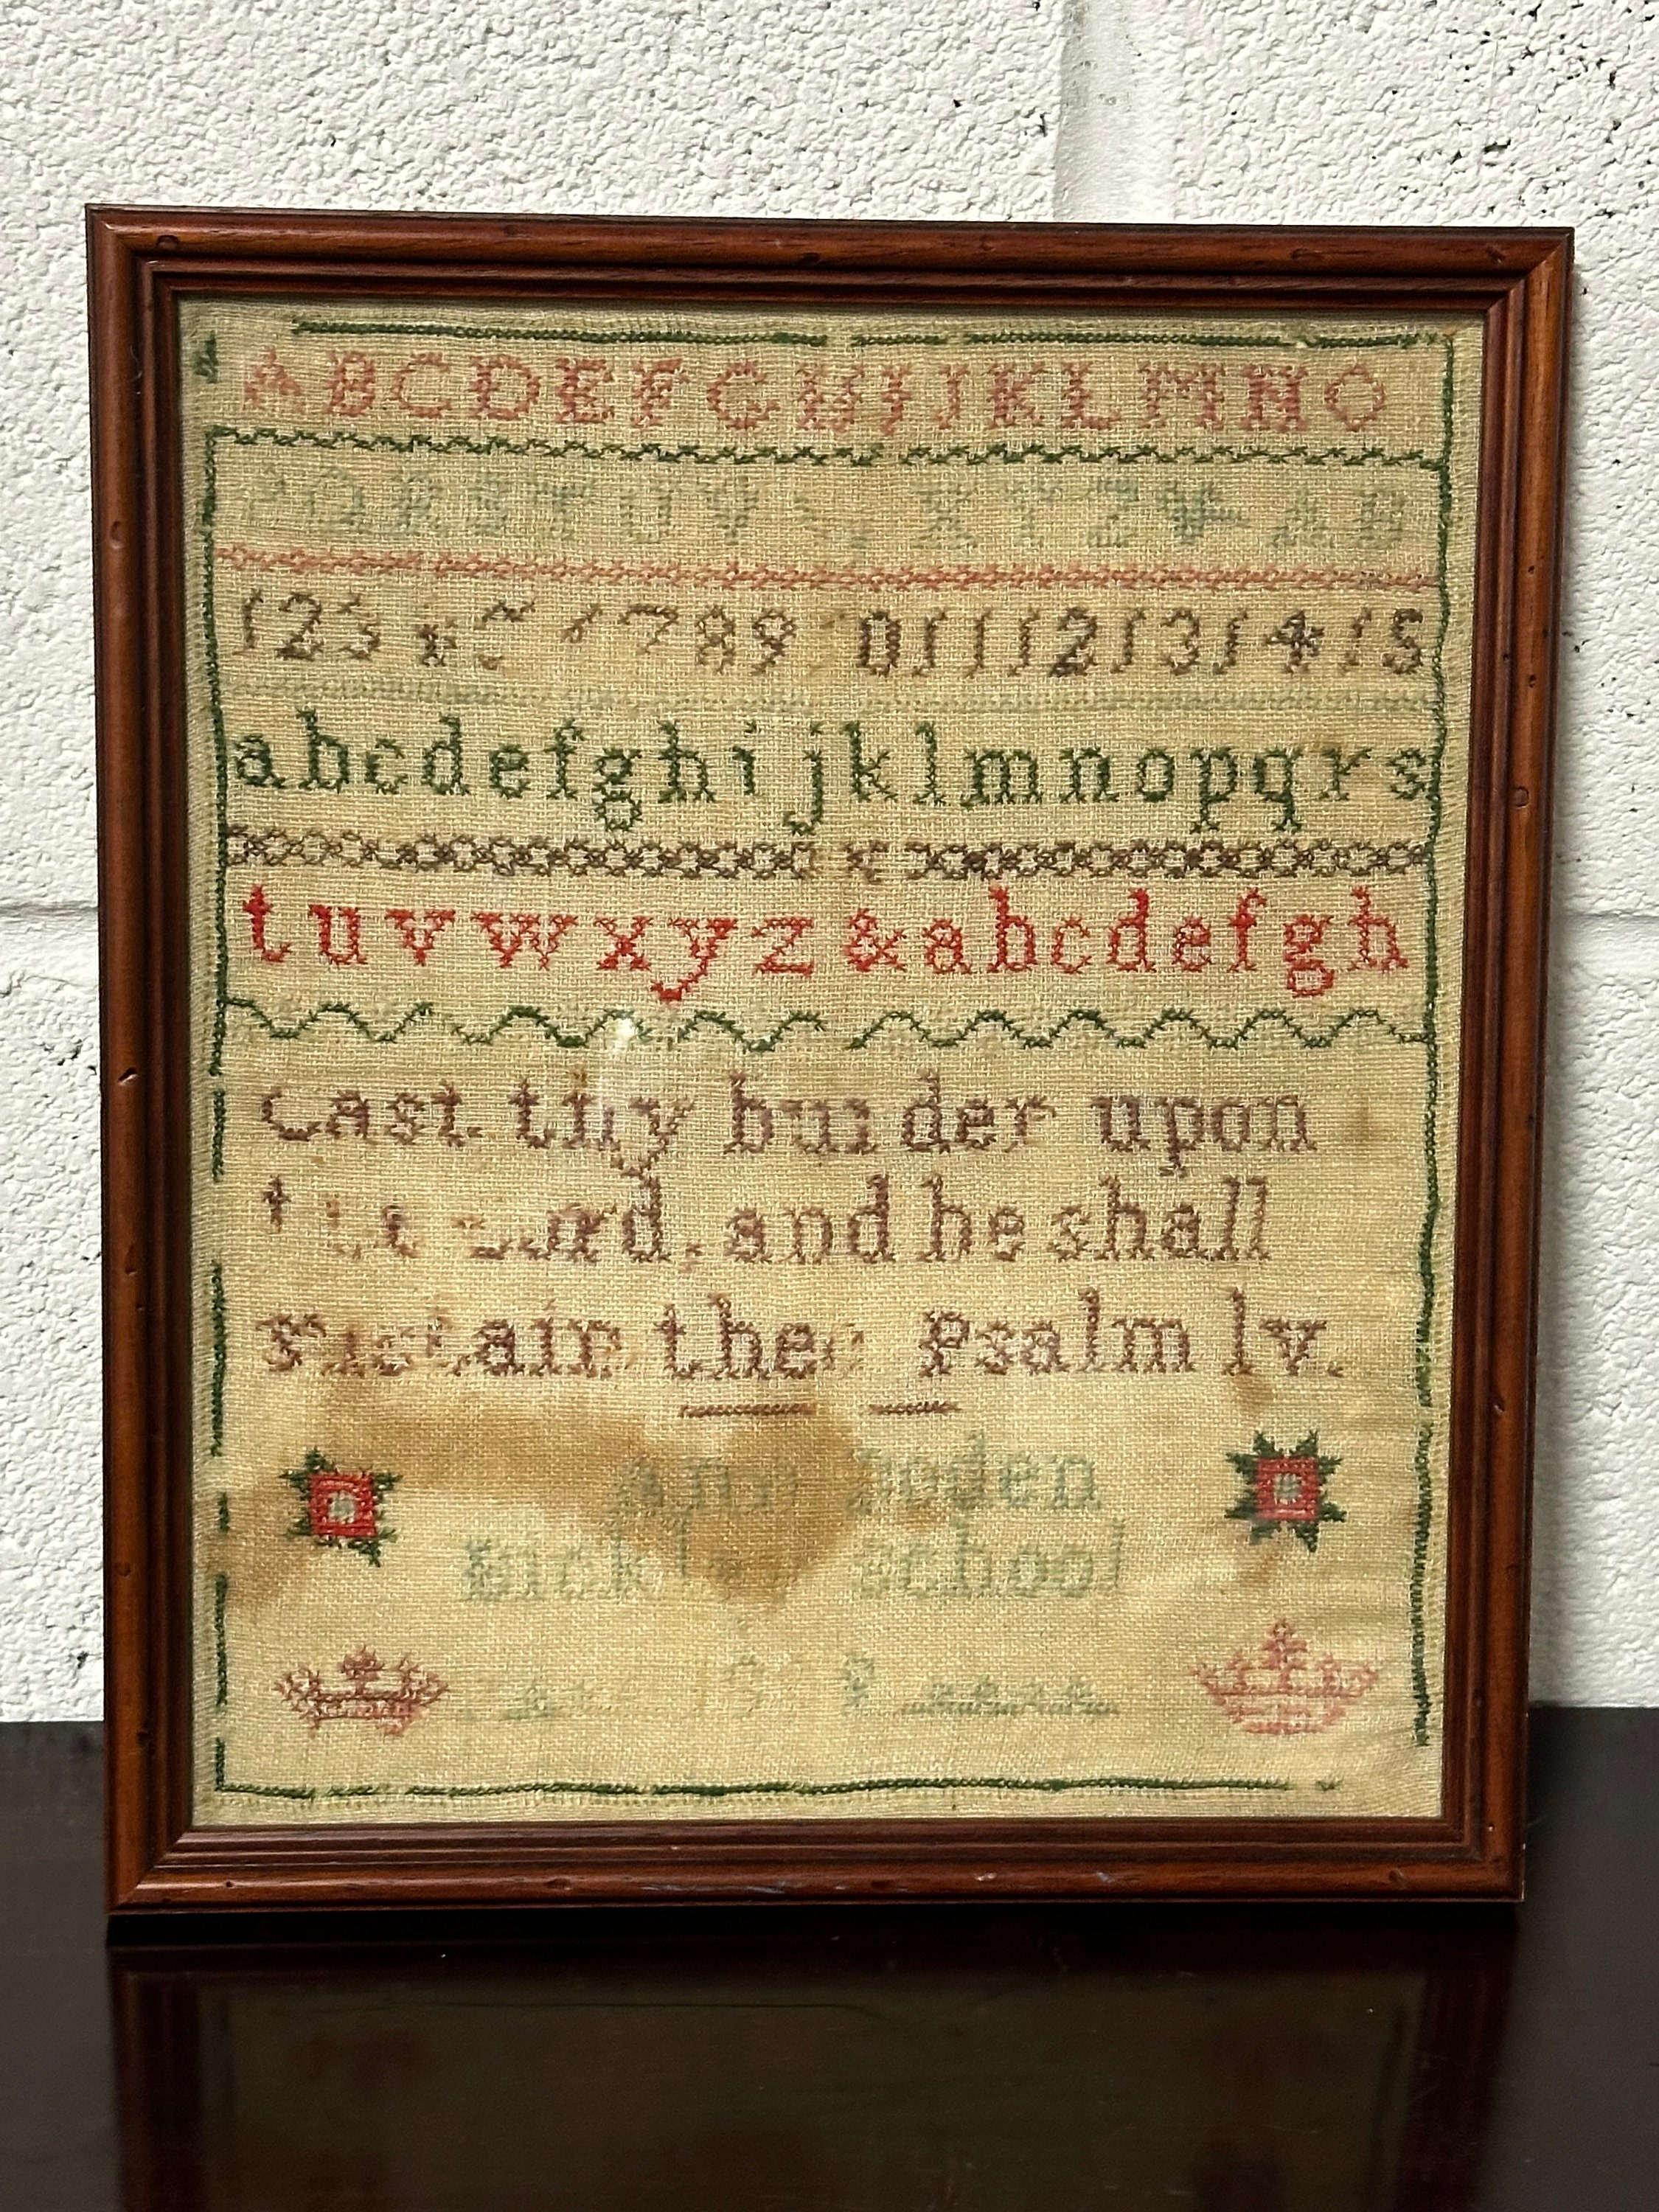 ABCDEFGHIJKLMNO
QRSTUV X Y Z A B
123 789 0 11 12 13 14 15
abcdefghijklmnopqrs
tuvwxyz&abcdefgh
Cast thy burden upon
Lord, and he shall
sustain thee Psalm lv.
Ann oden
school